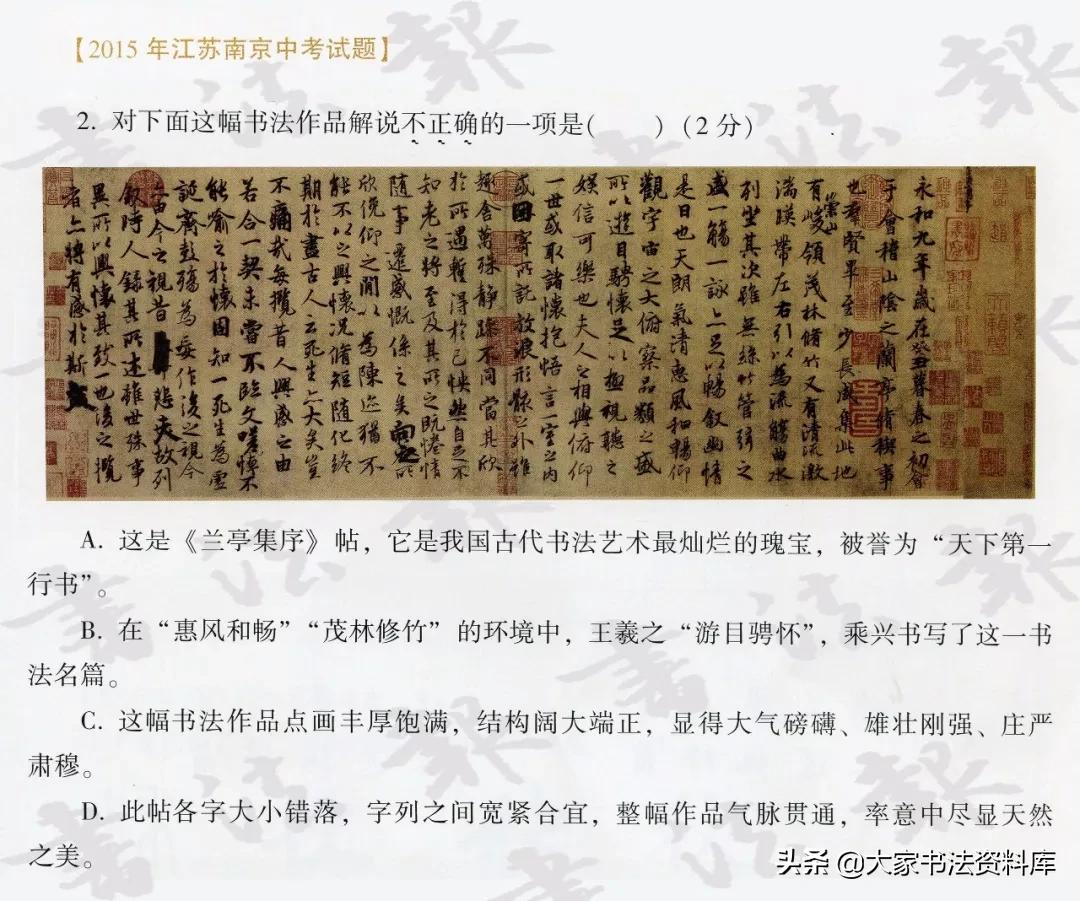 【2015 年江苏南京中考试题】
2. 对下面这幅书法作品解说不正确的一项是(    ) (2 分)
永和九年歲在癸丑暮春之初會
于會稽山陰之蘭亭脩稧事
也群賢畢至少長咸集此地
有崇山峻領茂林脩竹又有清流激
湍暎帶左右引以為流觴曲水
列坐其次雖無絲竹管弦之
盛一觴一詠亦足以暢敘幽情
是日也天朗氣清惠風和暢仰
觀宇宙之大俯察品類之盛
所以遊目騁懷足以極視聽之
娛信可樂也夫人之相與俯仰
一世或取諸懷抱悟言一室之內
或因寄所託放浪形骸之外雖
趣舍萬殊靜躁不同當其欣
於所遇蹔得於己怏然自足不
知老之將至及其所之既惓情
隨事遷感慨係之矣向之所
欣俛仰之閒以為陳迹猶不
能不以之興懷況脩短隨化終
期於盡古人云死生亦大矣豈
不痛哉每攬昔人興感之由
若合一契未嘗不臨文嗟悼不
能喻之於懷固知一死生為虛
誕齊彭殤為妄作後之視今
亦由今之視昔悲夫故列
敘時人錄其所述雖世殊事
異所以興懷其致一也後之攬
者亦將有感於斯文
A. 这是《兰亭集序》帖，它是我国古代书法艺术最灿烂的瑰宝，被誉为“天下第一
行书”。
B. 在“惠风和畅”“茂林修竹”的环境中，王羲之“游目骋怀”，乘兴书写了这一书
法名篇。
C. 这幅书法作品点画丰厚饱满，结构阔大端正，显得大气磅礴、雄壮刚强、庄严
肃穆。
D. 此帖各字大小错落，字列之间宽紧合宜，整幅作品气脉贯通，率意中尽显天然
之美。
头条 @大家书法资料库